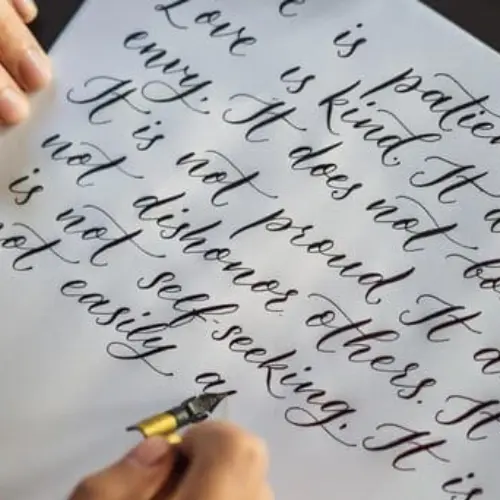 is patien
Love is kind. It d
envy. It does not bo
It is not proud. It d
not dishonor others. It
is not self-seeking. It is
not easily a